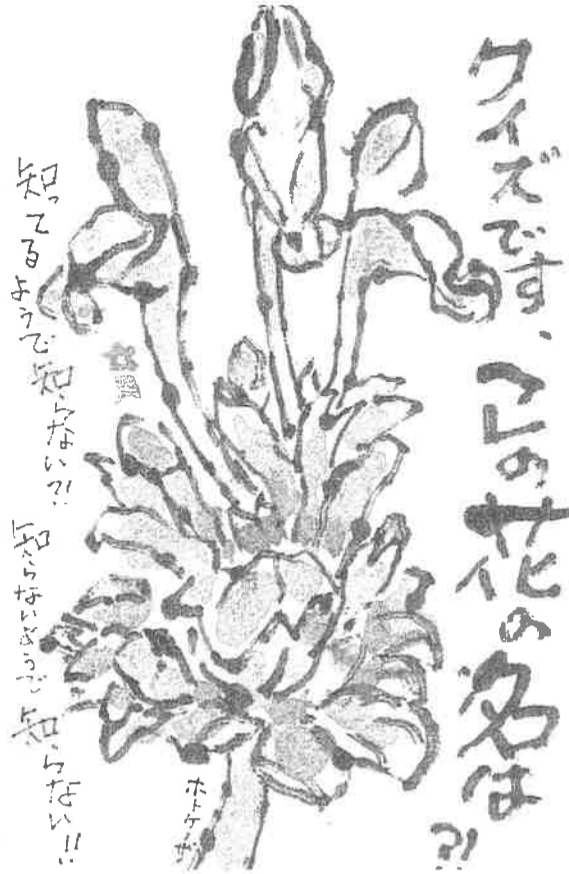 クイズです、コの花の名は?!
知ってるようで知らない?!
知らないようで知らない!!
ホトケザ